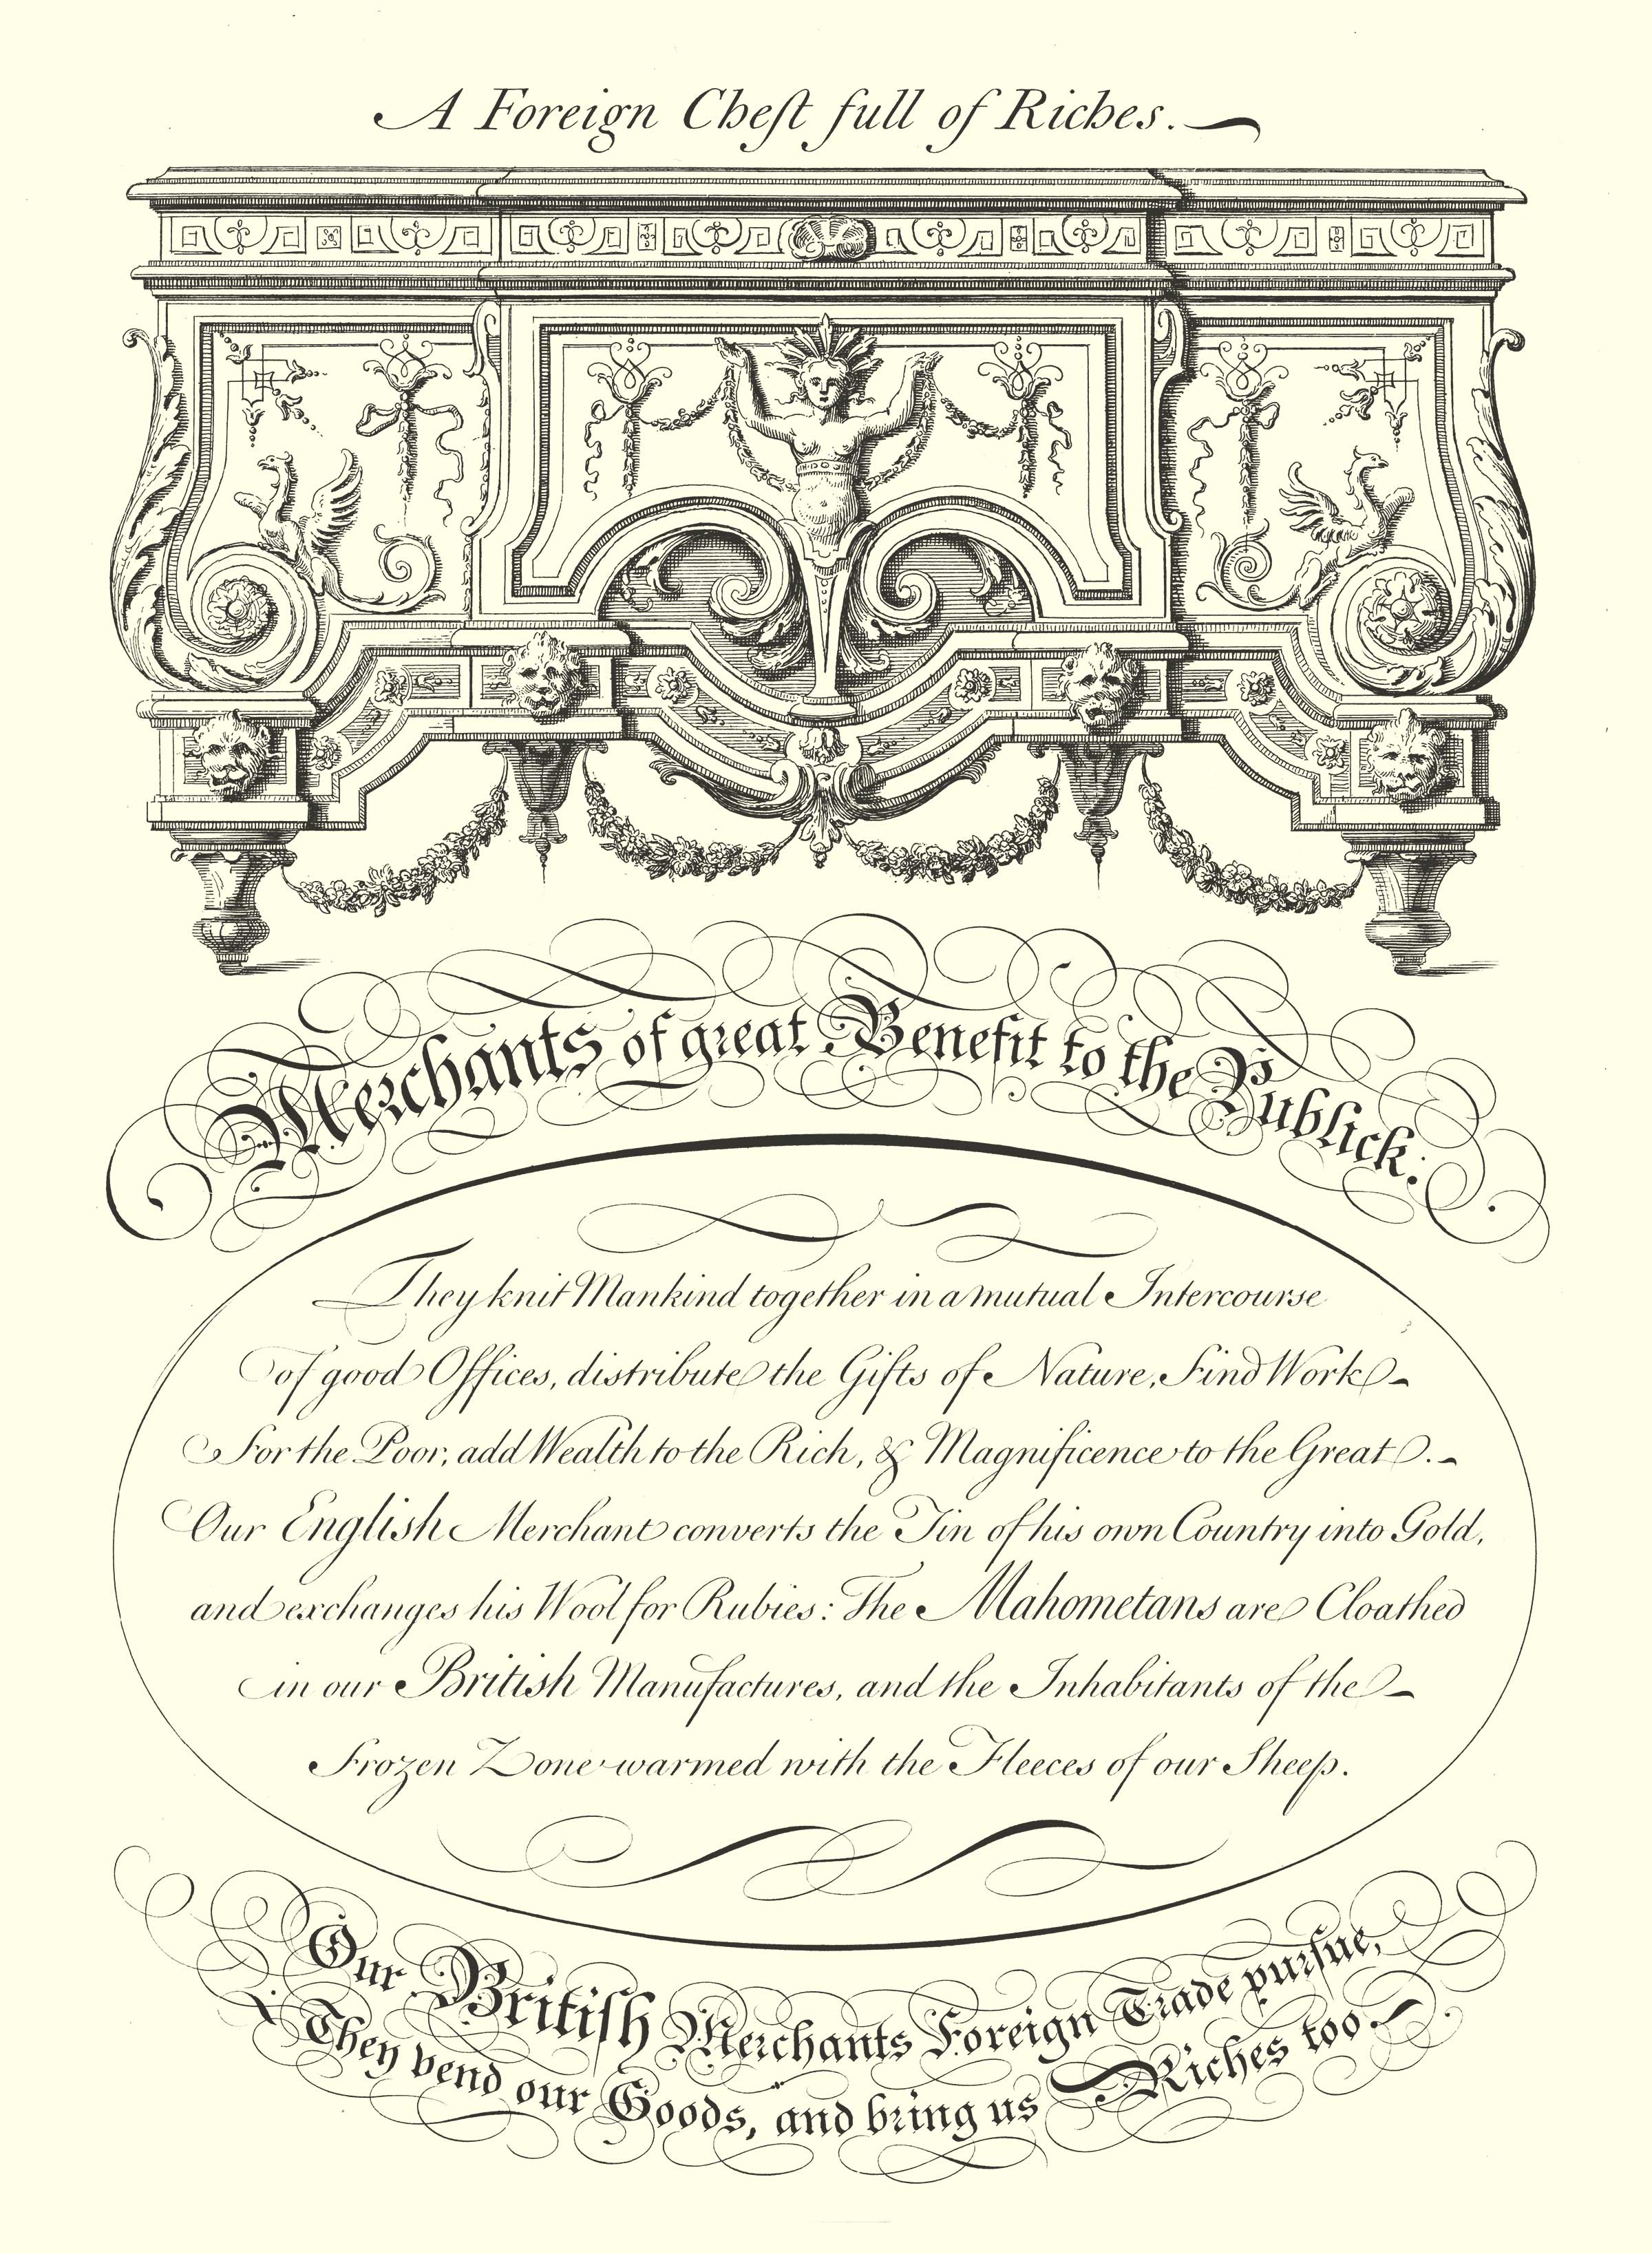 A Foreign Cheſt full of Riches.
Merchants of great Benefit to the Publick:
They knit Mankind together in a mutual Intercourse
of good Offices, distribute the Gifts of Nature, find Work
for the Poor, add Wealth to the Rich, & Magnificence to the Great.
Our English Merchant converts the Tin of his own Country into Gold,
and exchanges his Wool for Rubies: The Mahometans are Cloathed
in our British Manufactures, and the Inhabitants of the
Frozen Zone warmed with the Fleeces of our Sheep.
Our Britiſh Merchants Foreign Trade purſue,
They vend our Goods, and bring us Riches too.